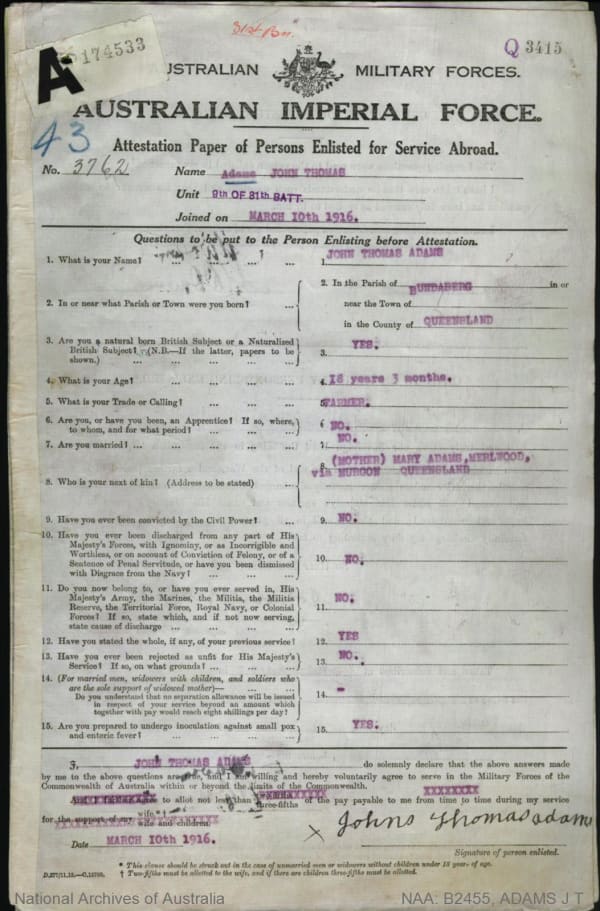 31st Bn.
A
174533
Q 3415
AUSTRALIAN MILITARY FORCES.
AUSTRALIAN IMPERIAL FORCE.
43
Attestation Paper of Persons Enlisted for Service Abroad.
No. 3762 Name Adams JOHN THOMAS
Unit 9th OF 31th BATT.
Joined on MARCH 10th 1916.
Questions to be put to the Person Enlisting before Attestation.
1. What is your Name? ... ... ... ... 1. JOHN THOMAS ADAMS
2. In or near what Parish or Town were you born? ... 2. In the Parish of BUNDABERG in or
near the Town of
in the County of QUEENSLAND
3. Are you a natural born British Subject or a Naturalized
British Subject? (N.B.—If the latter, papers to be
shown.) ... ... ... ... 3. YES.
4. What is your Age? ... ... ... 4. 18 years 3 months.
5. What is your Trade or Calling? ... ... 5. FARMER.
6. Are you, or have you been, an Apprentice? If so, where,
to whom, and for what period? ... ... ... 6 NO.
7. Are you married? ... ... ... ... 7. NO.
8. Who is your next of kin? (Address to be stated) ... 8 (MOTHER) MARY ADAMS, MERLWOOD,
via MURGON QUEENSLAND
9. Have you ever been convicted by the Civil Power? ... 9. NO.
10. Have you ever been discharged from any part of His
Majesty's Forces, with Ignominy, or as Incorrigible and
Worthless, or on account of Conviction of Felony, or of a
Sentence of Penal Servitude, or have you been dismissed
with Disgrace from the Navy? ... ... ... 10. NO.
11. Do you now belong to, or have you ever served in, His
Majesty's Army, the Marines, the Militia, the Militia
Reserve, the Territorial Force, Royal Navy, or Colonial
Forces? If so, state which, and if not now serving,
state cause of discharge ... ... ... 11. NO.
12. Have you stated the whole, if any, of your previous service? 12. YES
13. Have you ever been rejected as unfit for His Majesty's
Service? If so, on what grounds? ... ... ... 13. NO.
14. (For married men, widowers with children, and soldiers who
are the sole support of widowed mother)—
Do you understand that no separation allowance will be issued
in respect of your service beyond an amount which
together with pay would reach eight shillings per day? 14. -
15. Are you prepared to undergo inoculation against small pox
and enteric fever? ... ... ... ... 15. YES.
I, JOHN THOMAS ADAMS do solemnly declare that the above answers made
by me to the above questions are true, and I am willing and hereby voluntarily agree to serve in the Military Forces of the
Commonwealth of Australia within or beyond the limits of the Commonwealth.
to allot not less than three-fifths of the pay payable to me from time to time during my service
for the support of my wife
wife and children.
Date MARCH 10th 1916. x Johns Thomas adams
Signature of person enlisted.
* This clause should be struck out in the case of unmarried men or widowers without children under 18 years of age.
† Two-fifths must be allotted to the wife, and if there are children three-fifths must be allotted.
National Archives of Australia NAA: B2455, ADAMS J T